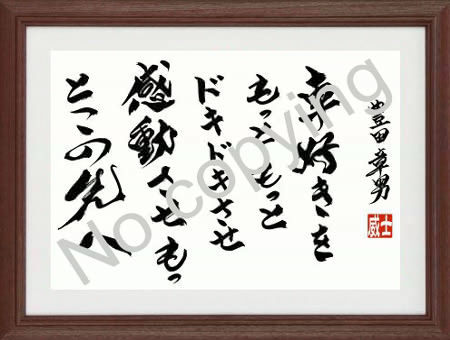 豊田章男
走り好きを
もっともっと
ドキドキさせ
感動させもっ
とこの先へ
士威
No copying